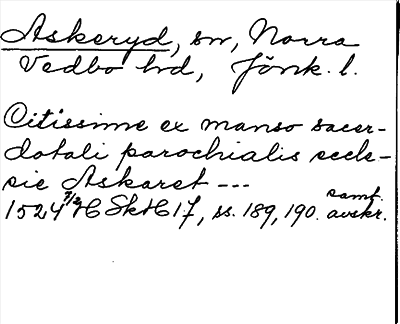 Askeryd, sn, Norra
Vedbo hd, Jönk. l.
Citissime ex manso sacer-
dotali parochialis eccle-
sie Askaret ---
1524 7/2 HSH 17, ss. 189, 190. samt. avskr.